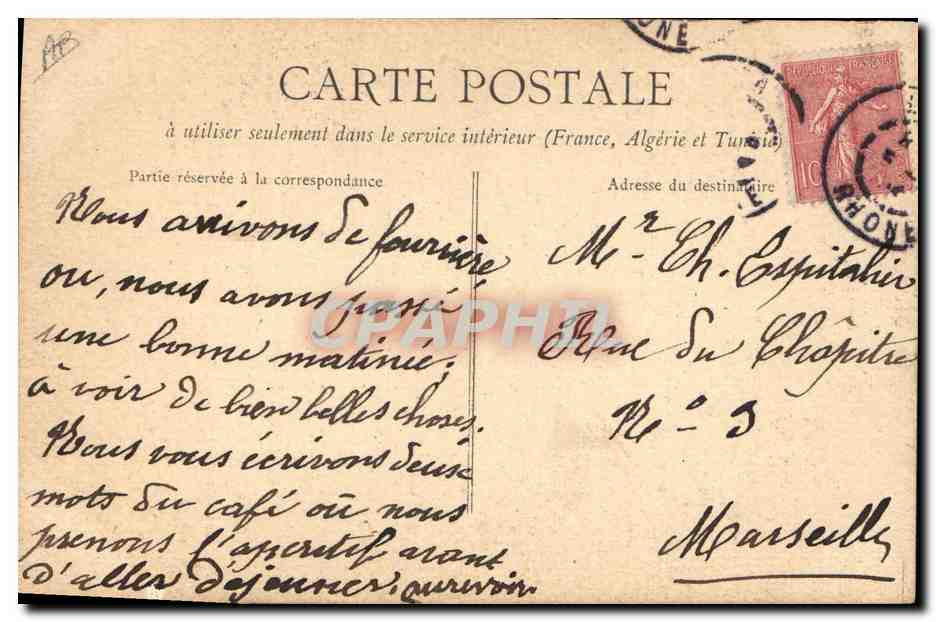 CARTE POSTALE
à utiliser seulement dans le service intérieur (France, Algérie et Tunisie)
Partie réservée à la correspondance
Nous arrivons de fourrière
ou, nous avons passé
une bonne matinée;
à voir de bien belles choses.
Nous vous écrivons deux
mots du café où nous
prenons l'aperitif avant
d'aller déjeuner, aurevoir.
Adresse du destinataire
Mr Ch. Espitalier
Rue du Chapitre
No - 3
Marseille
RÉPUBLIQUE FRANÇAISE
10
RHONE
CPAPHIL